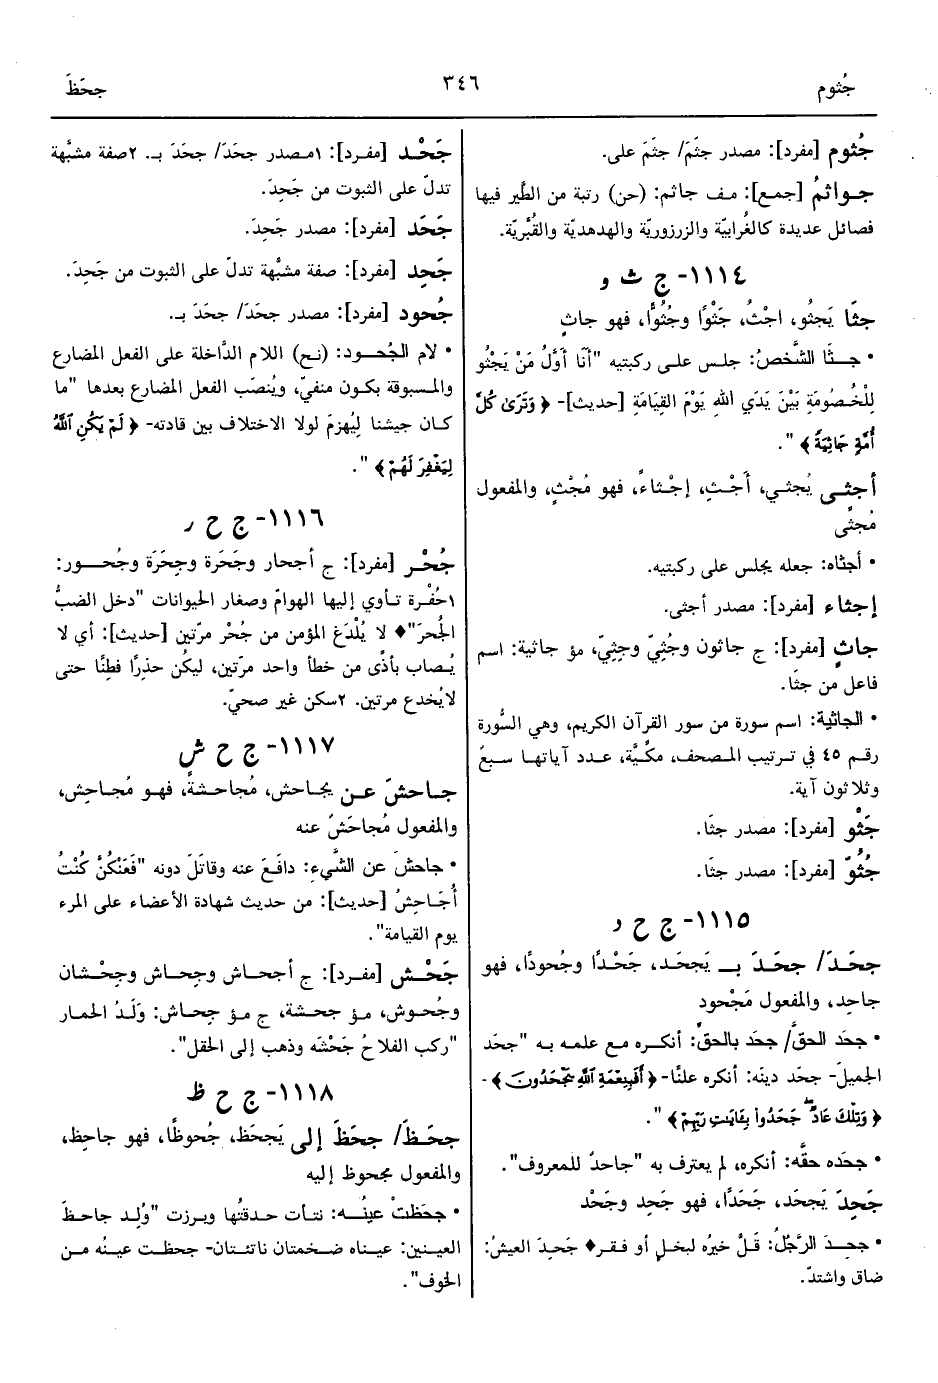 جُثوم
٣٤٦
جحَظَ
جُثوم [مفرد]: مصدر جثَم/ جثَمَ على.
جواثمُ [جمع]: مف جاثم: (حن) رتبة من الطَّير فيها
فصائل عديدة كالغُرابيّة والزرزوريّة والهدهديّة والقُبَّريّة.
١١١٤- ج ث و
جثَا يَجثُو، اجْثُ، جَثْوًا وجُثُوًّا، فهو جاثٍ
• جثَا الشَّخصُ: جلس على ركبتيه "أَنَا أَوَّلُ مَنْ يَجْثُو
لِلْخُصُومَةِ بَيْنَ يَدَي الله يَوْمَ القِيَامَةِ [حديث]- ﴿ وَتَرَىٰ كُلَّ
أُمَّةٍ جَاثِيَةً ﴾ ".
أجثى يُجثي، أَجْثِ، إجْثاءً، فهو مُجْثٍ، والمفعول
مُجثًى
• أجثاه: جعله يجلس على ركبتيه.
إجثاء [مفرد]: مصدر أجثى.
جاثٍ [مفرد]: ج جاثون وجُثِيّ وجِثِيّ، مؤ جاثية: اسم
فاعل من جثَا.
• الجاثية: اسم سورة من سور القرآن الكريم، وهي السُّورة
رقم ٤٥ في ترتيب المصحف، مكِّيَّة، عدد آياتها سبعٌ
وثلاثون آية.
جَثْو [مفرد]: مصدر جثَا.
جُثُوّ [مفرد]: مصدر جثَا.
١١١٥- ج ح د
جحَدَ/ جحَدَ بـ يَجحَد، جَحْدًا وجُحودًا، فهو
جاحِد، والمفعول مَجْحود
• جحَد الحقَّ/ جحَد بالحقِّ: أنكره مع علمه به "جحَد
الجميلَ- جحَد دينَه: أنكره علنًا- ﴿ أَفَبِنِعْمَةِ اللَّهِ يَجْحَدُونَ ﴾-
﴿ وَتِلْكَ عَادٌ جَحَدُوا بِآيَاتِ رَبِّهِمْ ﴾ ".
• جحَده حقَّه: أنكره، لم يعترف به "جاحدٌ للمعروف".
جَحِدَ يَجحَد، جَحَدًا، فهو جَحِد وجَحْد
• جحِدَ الرَّجُلُ: قَلَّ خيرُه لبخلٍ أو فقر♦ جَحِدَ العيشُ:
ضاق واشتدّ.
جَحْد [مفرد]: ١مصدر جحَدَ/ جحَدَ بـ. ٢صفة مشبَّهة
تدلّ على الثبوت من جَحِدَ.
جَحَد [مفرد]: مصدر جَحِدَ.
جَحِد [مفرد]: صفة مشبَّهة تدلّ على الثبوت من جَحِدَ.
جُحود [مفرد]: مصدر جحَدَ/ جحَدَ بـ.
• لام الجُحود: (نح) اللام الدَّاخلة على الفعل المضارع
والمسبوقة بكون منفيّ، ويُنصَب الفعل المضارع بعدها "ما
كان جيشنا لِيُهزَم لولا الاختلاف بين قادته- ﴿ لَمْ يَكُنِ اللَّهُ
لِيَغْفِرَ لَهُمْ ﴾ ".
١١١٦- ج ح ر
جُحْر [مفرد]: ج أجحار وجَحَرة وجِحَرَة وجُحور:
١حُفْرة تأوي إليها الهوامّ وصغار الحيوانات "دخل الضبُّ
الجُحرَ"♦ لا يُلْدَغ المؤمن من جُحْر مرّتين [حديث]: أي لا
يُصاب بأذًى من خطأ واحد مرّتين، ليكُن حذِرًا فطِنًا حتى
لايُخدع مرتين. ٢سكن غير صحيّ.
١١١٧- ج ح ش
جاحشَ عن يجاحش، مُجاحشةً، فهو مُجاحِش،
والمفعول مُجاحَشٌ عنه
• جاحشَ عن الشَّيءِ: دافَعَ عنه وقاتَلَ دونه "فَعَنْكُنَّ كُنْتُ
أُجَاحِشُ [حديث]: من حديث شهادة الأعضاء على المرء
يوم القيامة".
جَحْش [مفرد]: ج أجحاش وجِحاش وجِحْشان
وجُحوش، مؤ جحشة، ج مؤ جِحاش: وَلَدُ الحمار
"ركب الفلاحُ جَحْشَه وذهب إلى الحقل".
١١١٨- ج ح ظ
جحَظَ/ جحَظَ إلى يَجحَظ، جُحوظًا، فهو جاحِظ،
والمفعول مجحوظ إليه
• جحَظتْ عينُه: نتأت حدقتُها وبرزت "وُلِد جاحظَ
العينين: عيناه ضخمتان ناتئتان- جحظت عينُه من
الخوف".